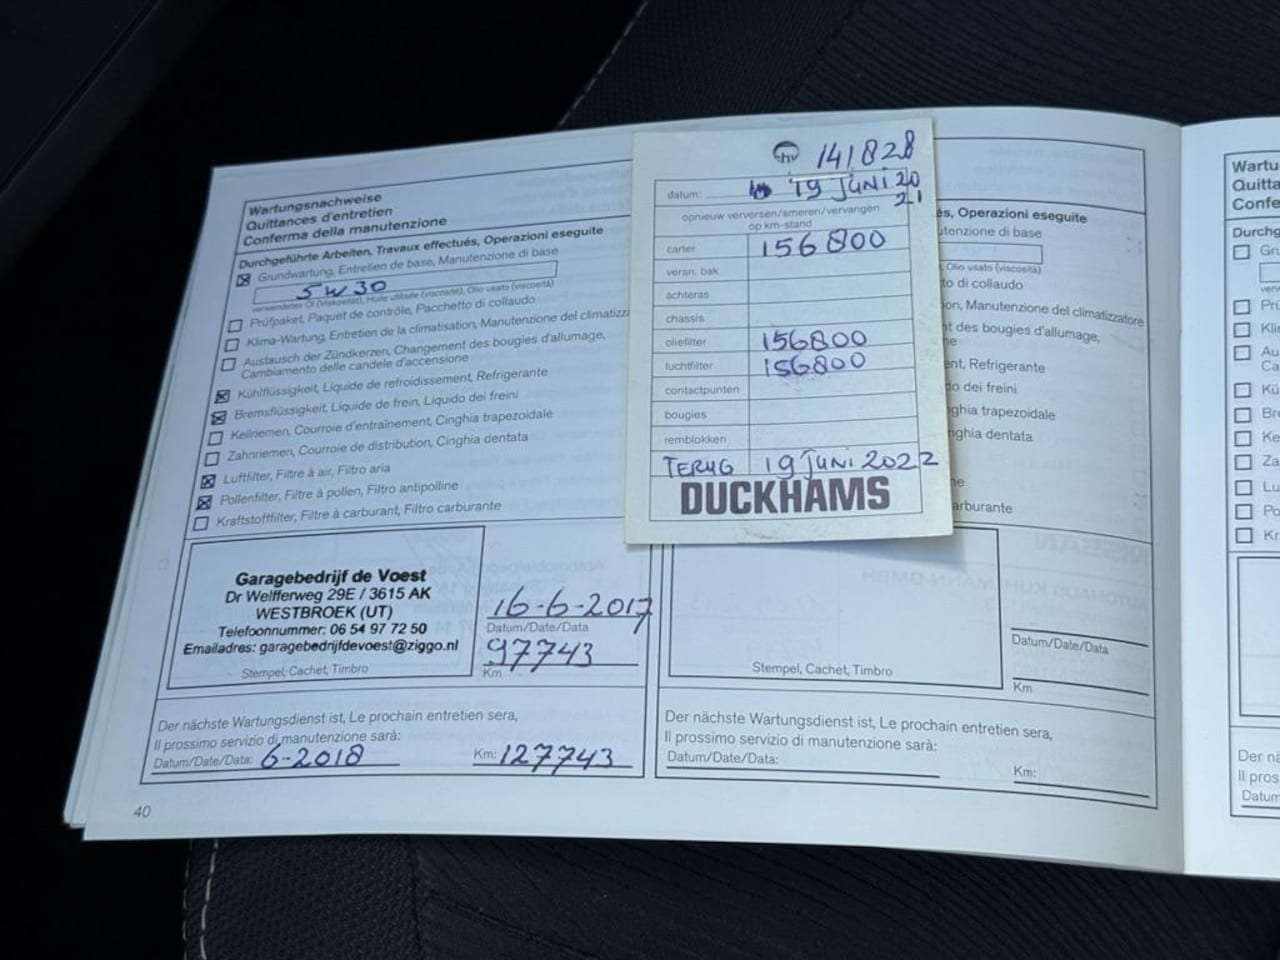 Wartungsnachweise
Quittances d'entretien
Conferma della manutenzione
Durchgeführte Arbeiten, Travaux effectués, Operazioni eseguite
Grundwartung, Entretien de base, Manutenzione di base
5W30
verwendetes Öl (Viskosität), Huile utilisée (viscosité), Olio usato (viscosità)
Prüfpaket, Paquet de contrôle, Pacchetto di collaudo
Klima-Wartung, Entretien de la climatisation, Manutenzione del climatizz
Austausch der Zündkerzen, Changement des bougies d'allumage,
Cambiamento delle candele d'accensione
Kühlflüssigkeit, Liquide de refroidissement, Refrigerante
Bremsflüssigkeit, Liquide de frein, Liquido dei freini
Keilriemen, Courroie d'entraînement, Cinghia trapezoidale
Zahnriemen, Courroie de distribution, Cinghia dentata
Luftfilter, Filtre à air, Filtro aria
Pollenfilter, Filtre à pollen, Filtro antipolline
Kraftstofffilter, Filtre à carburant, Filtro carburante
Garagebedrijf de Voest
Dr Welfferweg 29E / 3615 AK
WESTBROEK (UT)
Telefoonnummer: 06 54 97 72 50
Emailadres: garagebedrijfdevoest@ziggo.nl
Stempel, Cachet, Timbro
16-6-2017
Datum/Date/Data
97743
Km
Der nächste Wartungsdienst ist, Le prochain entretien sera,
Il prossimo servizio di manutenzione sarà:
Datum/Date/Data: 6-2018
Km: 127743
40
hv 141828
datum: 19 JUNI 20
21
opnieuw verversen/smeren/vervangen
op km-stand
carter 156800
versn. bak
achteras
chassis
oliefilter 156800
luchtfilter 156800
contactpunten
bougies
remblokken
TERUG 19 JUNI 2022
DUCKHAMS
és, Operazioni eseguite
utenzione di base
, Olio usato (viscosità)
to di collaudo
on, Manutenzione del climatizzatore
nt des bougies d'allumage,
ne
ent, Refrigerante
do dei freini
nghia trapezoidale
nghia dentata
ne
arburante
Stempel, Cachet, Timbro
Datum/Date/Data
Km
Der nächste Wartungsdienst ist, Le prochain entretien sera,
Il prossimo servizio di manutenzione sarà:
Datum/Date/Data:
Km:
Wartu
Quitta
Confe
Durchg
Gru
verw
Prü
Klim
Au
Ca
Kü
Bre
Ke
Za
Lu
Po
Kr
Der nä
Il pros
Datum